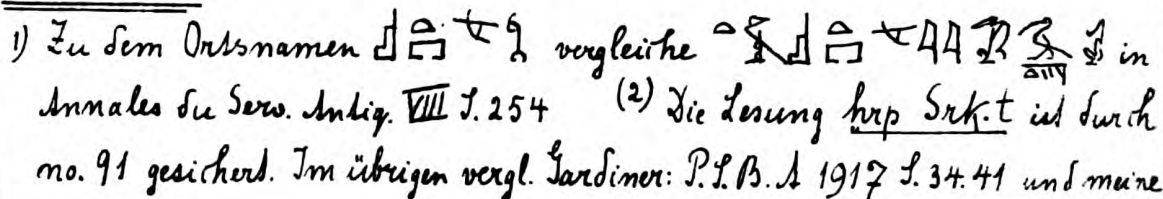 1) Zu dem Ortsnamen vergleiche in
Annales du Serv. Antiq. VIII S. 254 (2) Die Lesung hrp Srk.t ist durch
no. 91 gesichert. Im übrigen vergl. Gardiner: P.S.B.A 1917 S. 34.41 und meine